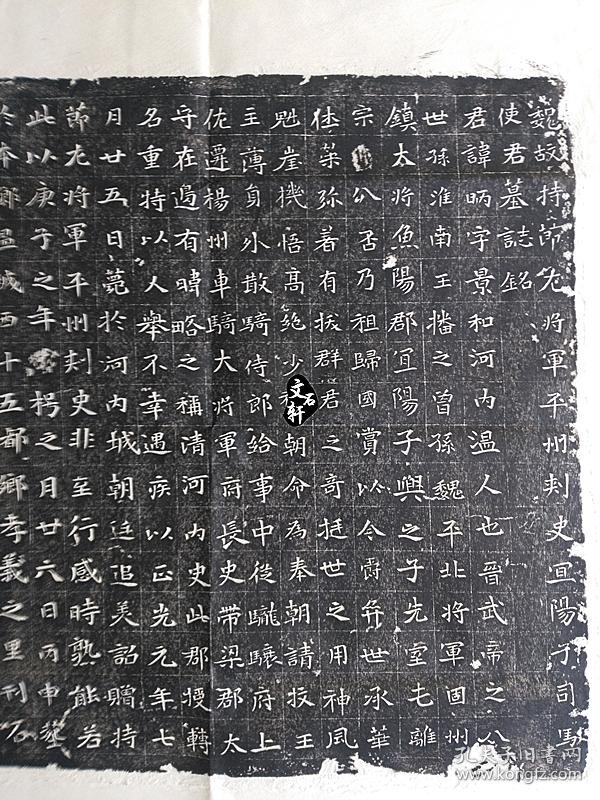 魏故持節左將軍平州刾史宜陽子司馬
使君墓誌銘
君諱昞字景和河內溫人也晉武帝之八
世孫淮南王播之曾孫魏平北將軍固州
鎮大將魚陽郡宜陽子興之子先室屯離
宗公否乃祖歸國賞以今爵弈世承華
住榮弥著有拔群君之奇挺世之用神風
魁崖機悟高絶少朝命為奉朝請牧王
主薄員外散騎侍郎給事中從驤驤府上
佐遷楊州車騎大將軍府長史帶梁郡太
守在邊有暐略之稱清河內史此郡授轉
名重特以人舉不幸遇疾以正光元年七
月廿五日薨於河內城朝廷追美詔贈持
節左將軍平州刾史非至行感時熟能若
此以庚子之年枵之月廿六日丙申塟
於本鄉溫城西十五都鄉孝義之里刊石
文石轩
孔夫子旧书网
www.kongfz.com